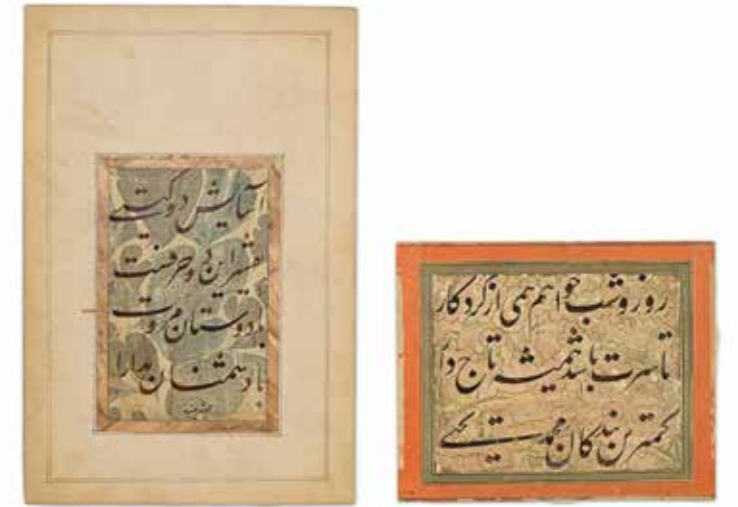 آسایش دو گیتی
تفسیر این دو حرفست
با دوستان مروت
با دشمنان مدارا
روز و شب خواهم همی از کردکار
تا سرت باشد همیشه تاج دار
کمترین بندکان محمد